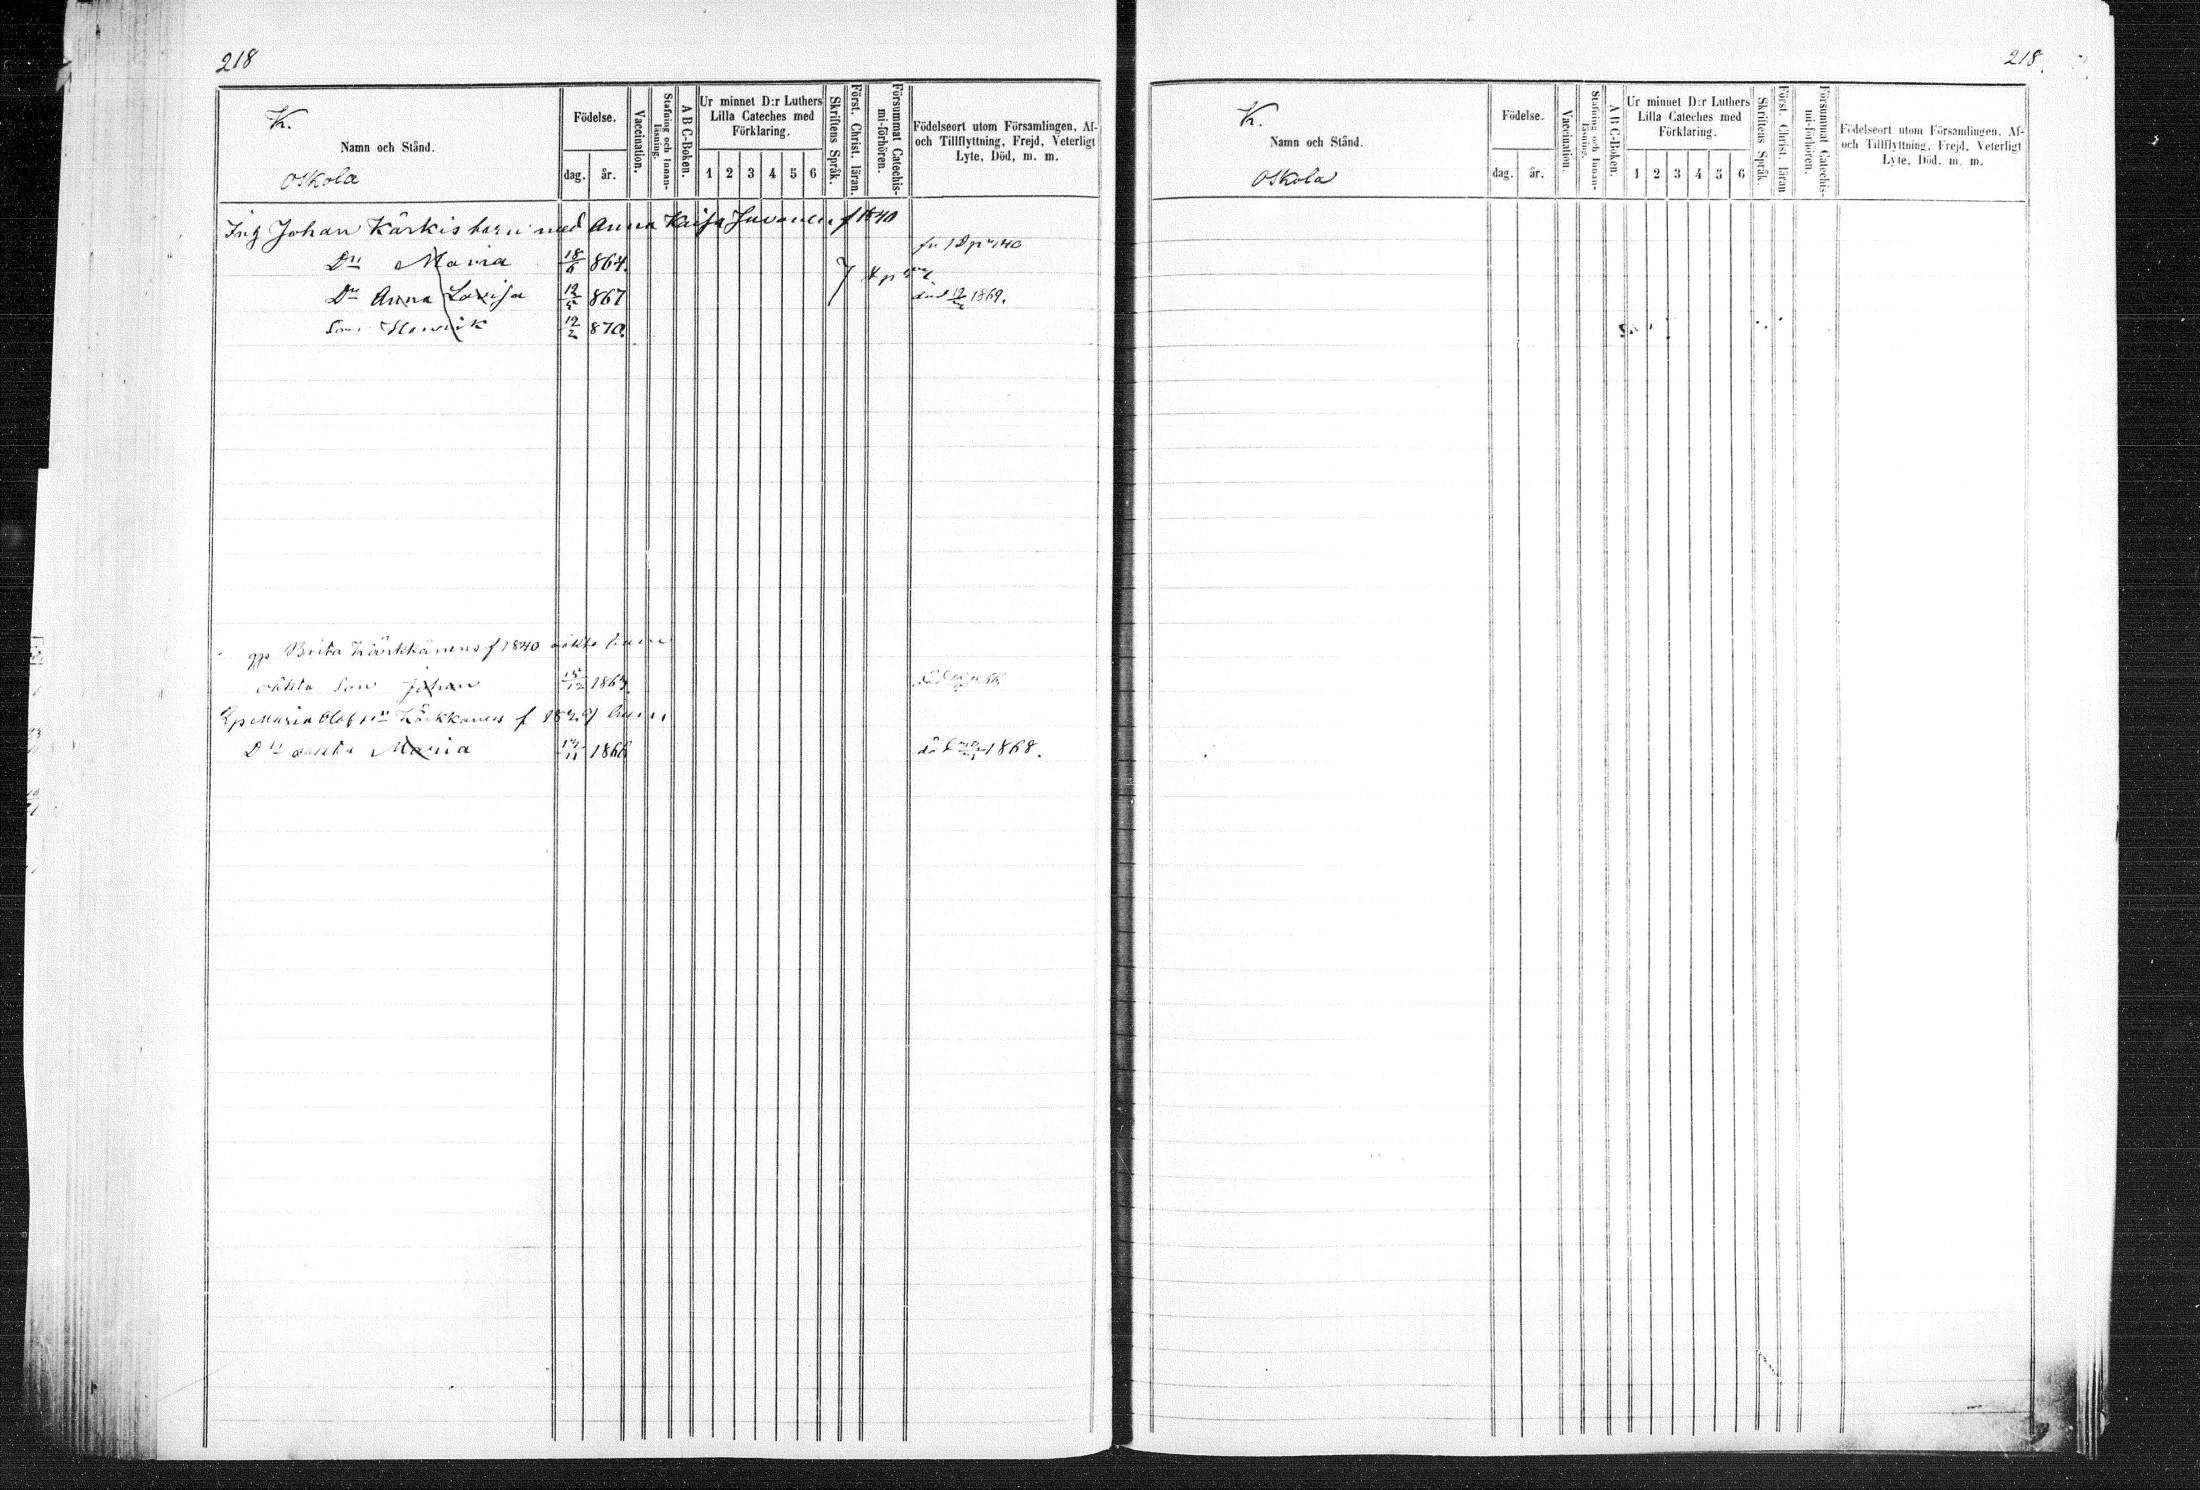 218
K.
Namn och Stånd.
Oskola
Födelse.
dag.
år.
Vaccination.
Stafning och Innan-
läsning.
A B C-Boken.
Ur minnet D:r Luthers
Lilla Cateches med
Förklaring.
1 2 3 4 5 6
Skriftens Språk.
Först. Christ. läran.
Försummat Catechis-
mi-förhören.
Födelseort utom Församlingen, Af-
och Tillflyttning, Frejd, Veterligt
Lyte, Död, m. m.
Johan Kärkis barn med Anna Kaisa Juvonen f 1840
Dn Maria 18/6 864.
Dn Anna Lovisa 12/5 867 död 1869.
Son Henrik 12/2 870.
Brita Kärkkänens f 1840 oäkta barn
oäkta Son Johan 15/12 1863
Maria Olofsdn Kärkkanens f
Dn oäkta Maria 1866 död 1868.
218.
K.
Namn och Stånd.
Oskola
Födelse.
dag.
år.
Vaccination.
Stafning och Innan-
läsning.
A B C-Boken.
Ur minnet D:r Luthers
Lilla Cateches med
Förklaring.
1 2 3 4 5 6
Skriftens Språk.
Först. Christ. läran.
Försummat Catechis-
mi-förhören.
Födelseort utom Församlingen, Af-
och Tillflyttning, Frejd, Veterligt
Lyte, Död, m. m.